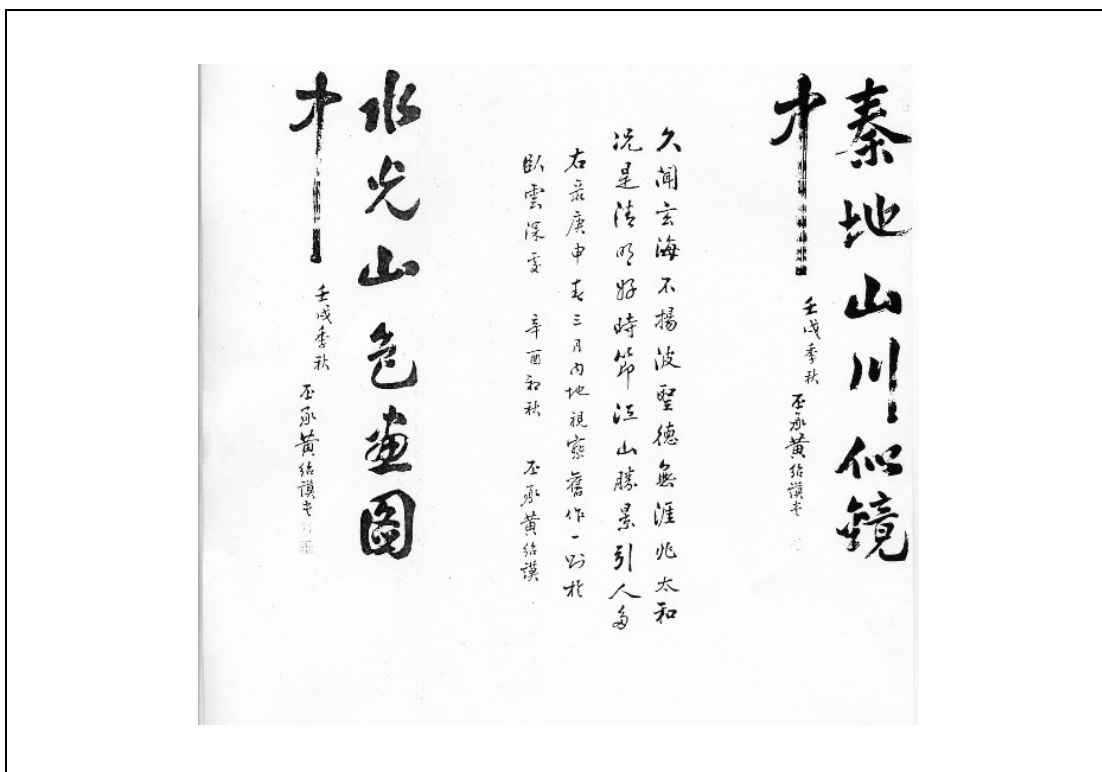 秦地山川似鏡
中
壬戌季秋 丕承黃紹謨书
久聞玄海不揚波聖德無涯兆太和
況是清明好時節江山勝景引人多
右录庚申春三月內地視察舊作一則於
臥雲深處 辛酉初秋 丕承黃紹謨
水光山色畫圖
中
壬戌季秋 丕承黃紹謨书